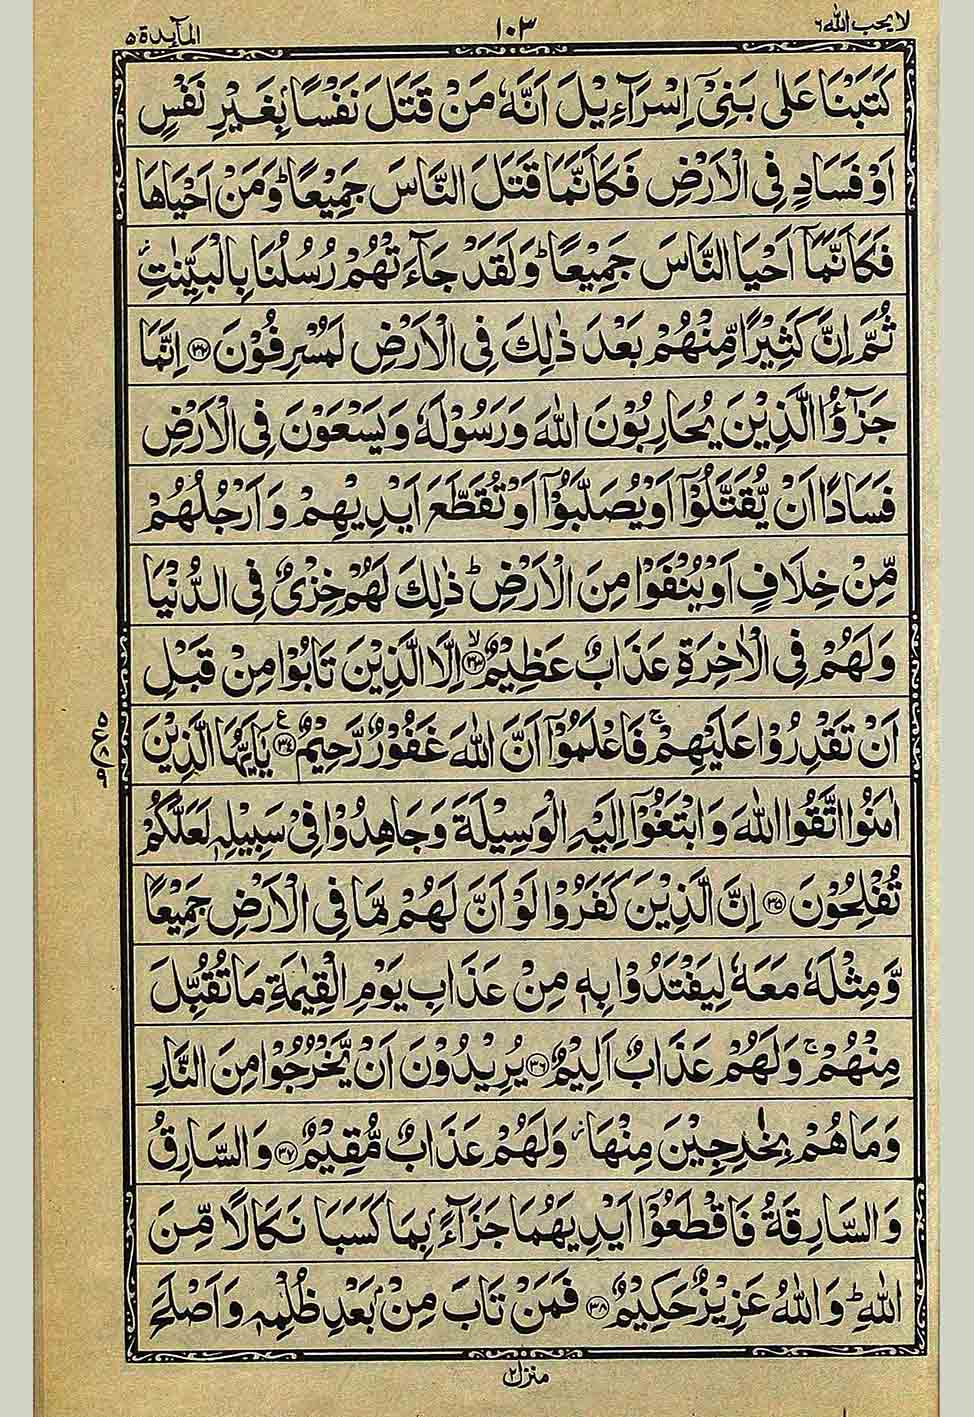 لا يحب الله ٦
١٠٣
المآيدة ٥
كَتَبْنَا عَلٰى بَنِىْٓ اِسْرَآءِيْلَ اَنَّهٗ مَنْ قَتَلَ نَفْسًۢا بِغَيْرِ نَفْسٍ
اَوْ فَسَادٍ فِى الْاَرْضِ فَكَاَنَّمَا قَتَلَ النَّاسَ جَمِيْعًا ؕ وَمَنْ اَحْيَاهَا
فَكَاَنَّمَاۤ اَحْيَا النَّاسَ جَمِيْعًا ؕ وَلَقَدْ جَآءَتْهُمْ رُسُلُنَا بِالْبَيِّنٰتِ
ثُمَّ اِنَّ كَثِيْرًا مِّنْهُمْ بَعْدَ ذٰلِكَ فِى الْاَرْضِ لَمُسْرِفُوْنَ ٣٢ اِنَّمَا
جَزٰٓؤُا الَّذِيْنَ يُحَارِبُوْنَ اللّٰهَ وَرَسُوْلَهٗ وَيَسْعَوْنَ فِى الْاَرْضِ
فَسَادًا اَنْ يُّقَتَّلُوْٓا اَوْ يُصَلَّبُوْٓا اَوْ تُقَطَّعَ اَيْدِيْهِمْ وَاَرْجُلُهُمْ
مِّنْ خِلَافٍ اَوْ يُنْفَوْا مِنَ الْاَرْضِ ؕ ذٰلِكَ لَهُمْ خِزْىٌ فِى الدُّنْيَا
وَلَهُمْ فِى الْاٰخِرَةِ عَذَابٌ عَظِيْمٌ ٣٣ۙ اِلَّا الَّذِيْنَ تَابُوْا مِنْ قَبْلِ
اَنْ تَقْدِرُوْا عَلَيْهِمْ ۚ فَاعْلَمُوْٓا اَنَّ اللّٰهَ غَفُوْرٌ رَّحِيْمٌ ٣٤ ع يٰٓاَيُّهَا الَّذِيْنَ
٥
ع ٨
٩
اٰمَنُوا اتَّقُوا اللّٰهَ وَابْتَغُوْٓا اِلَيْهِ الْوَسِيْلَةَ وَجَاهِدُوْا فِىْ سَبِيْلِهٖ لَعَلَّكُمْ
تُفْلِحُوْنَ ٣٥ اِنَّ الَّذِيْنَ كَفَرُوْا لَوْ اَنَّ لَهُمْ مَّا فِى الْاَرْضِ جَمِيْعًا
وَّمِثْلَهٗ مَعَهٗ لِيَفْتَدُوْا بِهٖ مِنْ عَذَابِ يَوْمِ الْقِيٰمَةِ مَا تُقُبِّلَ
مِنْهُمْ ۚ وَلَهُمْ عَذَابٌ اَلِيْمٌ ٣٦ يُرِيْدُوْنَ اَنْ يَّخْرُجُوْا مِنَ النَّارِ
وَمَا هُمْ بِخٰرِجِيْنَ مِنْهَا ز وَلَهُمْ عَذَابٌ مُّقِيْمٌ ٣٧ وَالسَّارِقُ
وَالسَّارِقَةُ فَاقْطَعُوْٓا اَيْدِيَهُمَا جَزَآءًۢ بِمَا كَسَبَا نَكَالًا مِّنَ
اللّٰهِ ؕ وَاللّٰهُ عَزِيْزٌ حَكِيْمٌ ٣٨ فَمَنْ تَابَ مِنْۢ بَعْدِ ظُلْمِهٖ وَاَصْلَحَ
منزل ٢